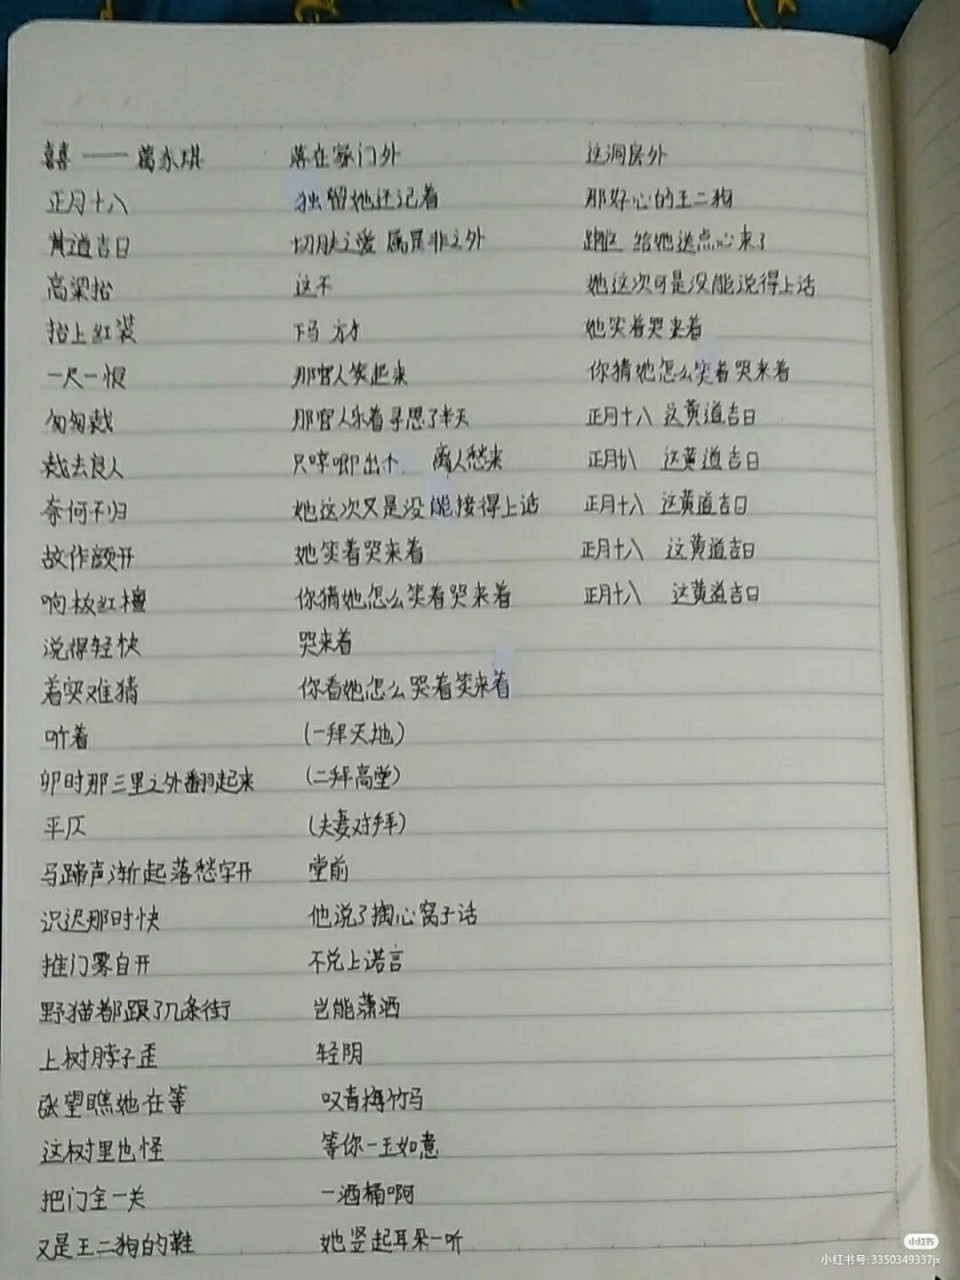 囍 —— 葛东琪
正月十八
黄道吉日
高梁抬
抬上红装
一尺一恨
匆匆裁
裁去良人
奈何不归
故作颜开
响板红檀
说得轻快
着实难猜
听着
卯时那三里之外翻起来
平仄
马蹄声渐起落愁字开
识迟那时快
推门雾自开
野猫都跟了几条街
上树脖子歪
张望瞧她在等
这树里也怪
把门全一关
又是王二狗的鞋
落在家门外
独留她还记着
切肤之爱 属是非之外
这不
下马 方才
那官人笑起来
那官人乐着寻思了半天
只哼唧出个 离人愁来
她这次又是没能接得上话
她笑着哭来着
你猜她怎么笑着哭来着
哭来着
你看她怎么哭着笑来着
(一拜天地)
(二拜高堂)
(夫妻对拜)
堂前
他说了掏心窝子话
不兑上诺言
岂能潇洒
轻阴
叹青梅竹马
等你一玉如意
一酒桶啊
她竖起耳朵一听
这洞房外
那好心的王二狗
跑这 给她送点心来了
她这次可是没能说得上话
她笑着哭来着
你猜她怎么笑着哭来着
正月十八 这黄道吉日
正月十八 这黄道吉日
正月十八 这黄道吉日
正月十八 这黄道吉日
正月十八 这黄道吉日
小红书
小红书号: 3350349337jx